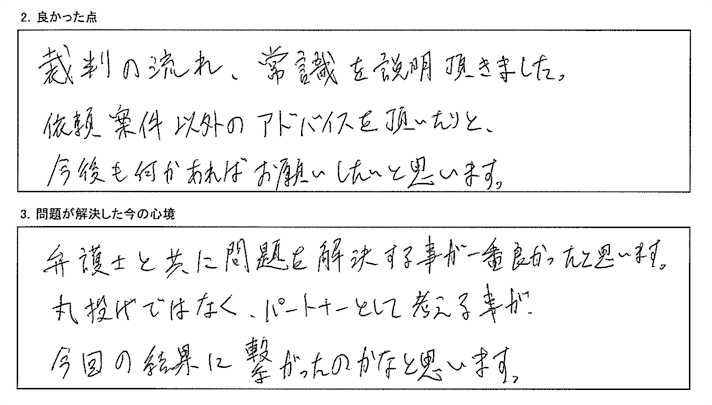 2. 良かった点
裁判の流れ、常識を説明頂きました。
依頼案件以外のアドバイスを頂いたりと、
今後も何かあればお願いしたいと思います。
3. 問題が解決した今の心境
弁護士と共に問題を解決する事が一番良かったと思います。
丸投げではなく、パートナーとして考える事が、
今回の結果に繋がったのかなと思います。